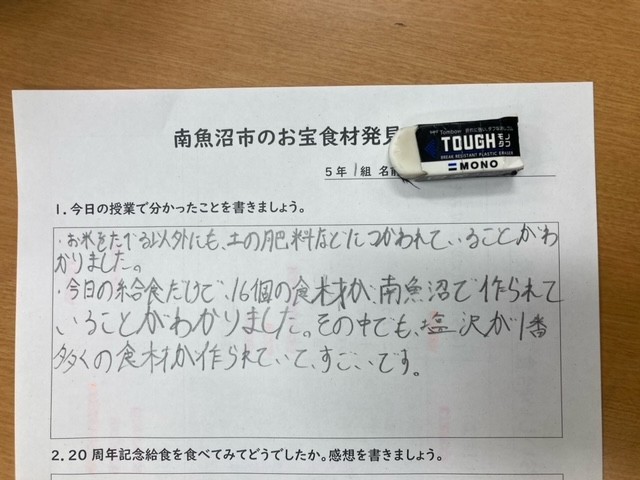 南魚沼市のお宝食材発見
5年 1組 名前
Tombow
TOUGH モノタフ
BREAK RESISTANT PLASTIC ERASER
MONO
1.今日の授業で分かったことを書きましょう。
・お米をたべる以外にも、土の肥料などにつかわれていることがわ
かりました。
・今日の給食だけで、16個の食材が、南魚沼で作られて
いることがわかりました。その中でも、塩沢が1番
多くの食材が作られていて、すごいです。
2.20周年記念給食を食べてみてどうでしたか。感想を書きましょう。